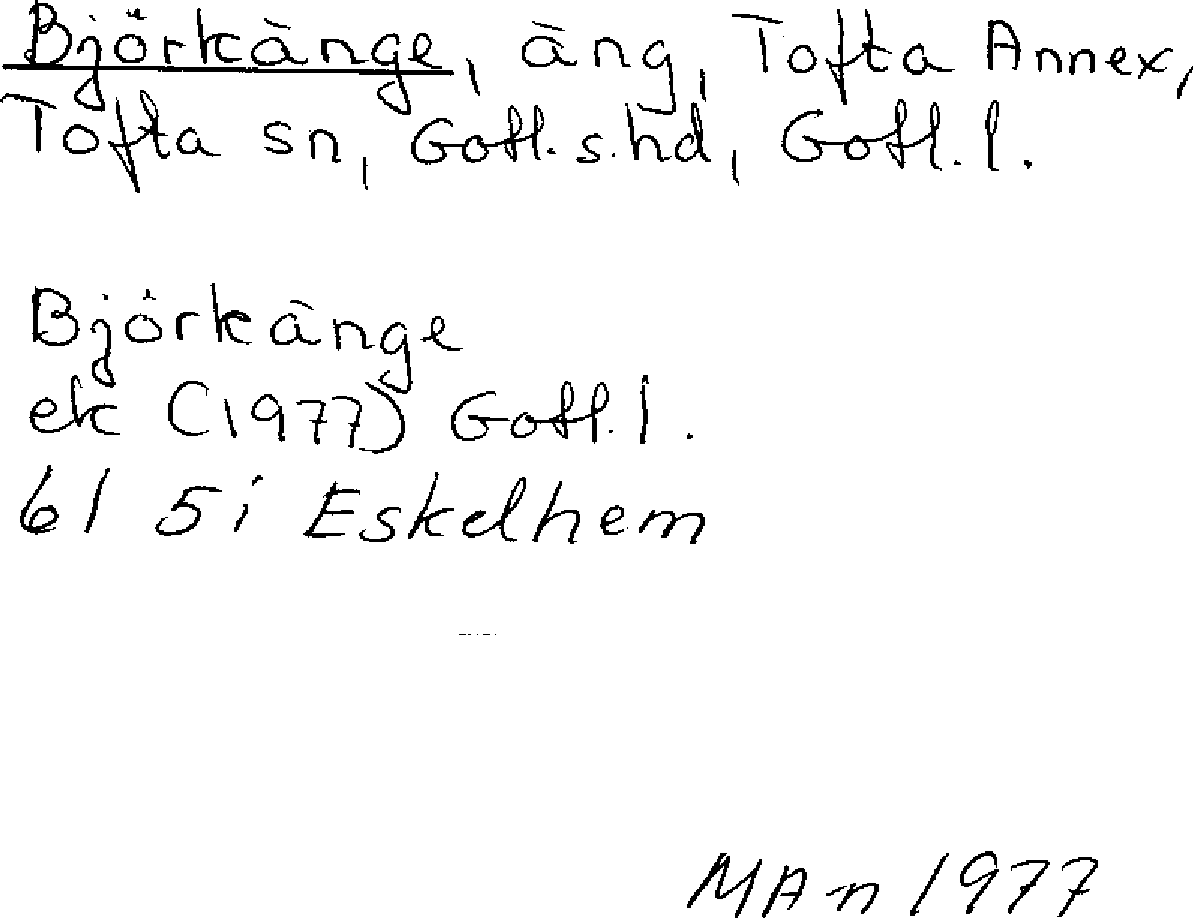 Björkänge, äng, Tofta Annex,
Tofta sn, Gotl. s. hd, Gotl. l.
Björkänge
ek (1977) Gotl. l.
6I 5i Eskelhem
MAn 1977